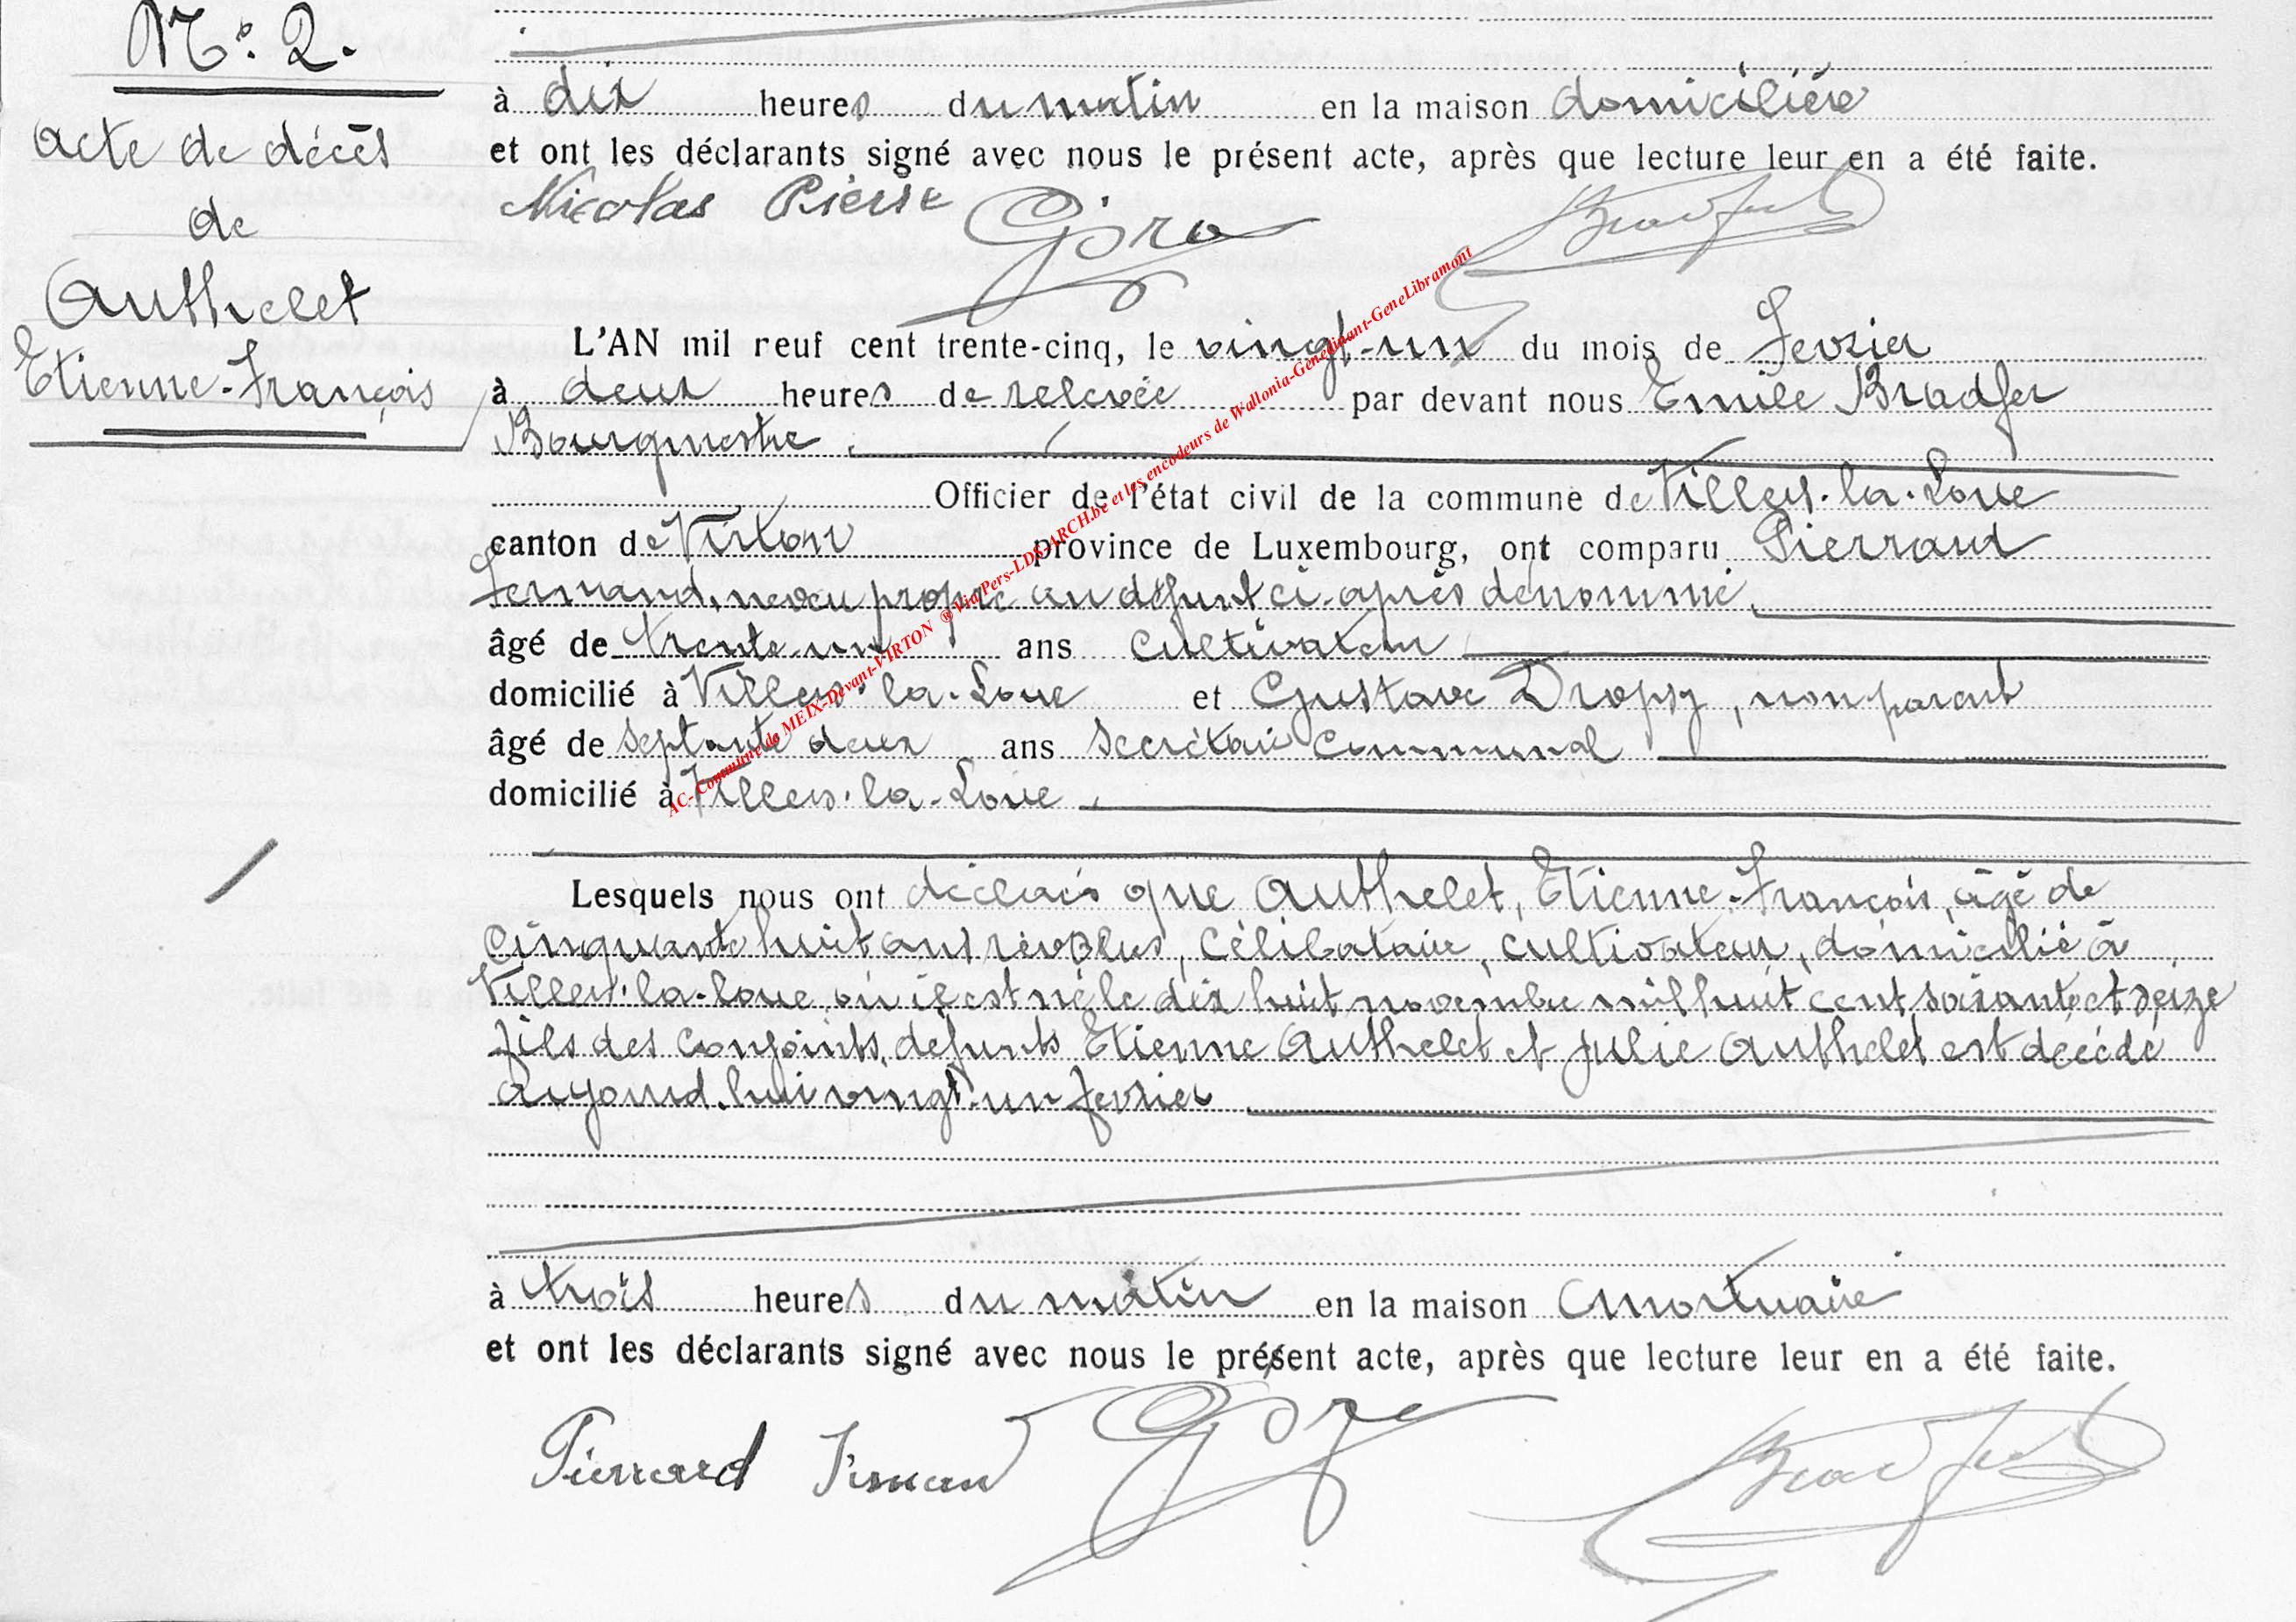 N°. 2.
à dix heures du matin en la maison domicilière
et ont les déclarants signé avec nous le présent acte, après que lecture leur en a été faite.
Nicolas Pierre
Bradfer
Acte de décès
de
Authelet
Etienne-François
L'AN mil neuf cent trente-cinq, le vingt-un du mois de Fevrier
à deux heures de relevée par devant nous Emile Bradfer
Bourgmestre
Officier de l'état civil de la commune de Villers-la-Loue
canton de Virton province de Luxembourg, ont comparu Pierrard
Fernand, neveu propre au défunt ci-après dénommé,
âgé de trente-un ans cultivateur
domicilié à Villers-la-Loue et Gustave Dropsy, non parent
âgé de septante deux ans secrétaire communal
domicilié à Villers-la-Loue,
AC-Commune de MEIX-Devant-VIRTON ® ViaPers-LDS-ARCH.be et les encodeurs de Wallonia-Genedinant-GeneLibramont
Lesquels nous ont déclaré que Authelet, Etienne-François, âgé de
cinquante huit ans révolus, célibataire, cultivateur, domicilié à
Villers-la-loue où il est né le dix huit novembre mil huit cent soixante et seize
fils des conjoints, défunts Etienne Authelet et Julie Authelet est décédé
aujourd'hui vingt-un fevrier
à trois heures du matin en la maison mortuaire
et ont les déclarants signé avec nous le présent acte, après que lecture leur en a été faite.
Pierrard Fernand
Bradfer